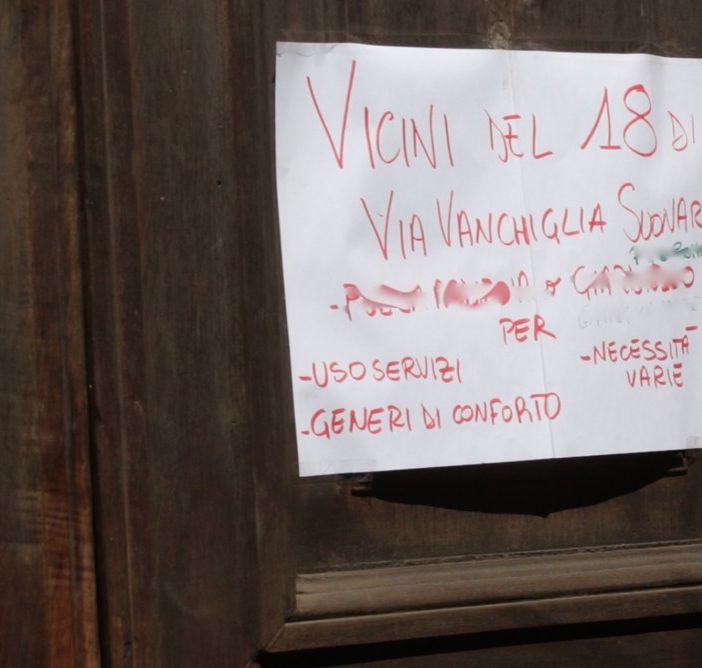 VICINI DEL 18 DI
VIA VANCHIGLIA SUONAR
PER
-USO SERVIZI
-NECESSITÀ
VARIE
-GENERI DI CONFORTO